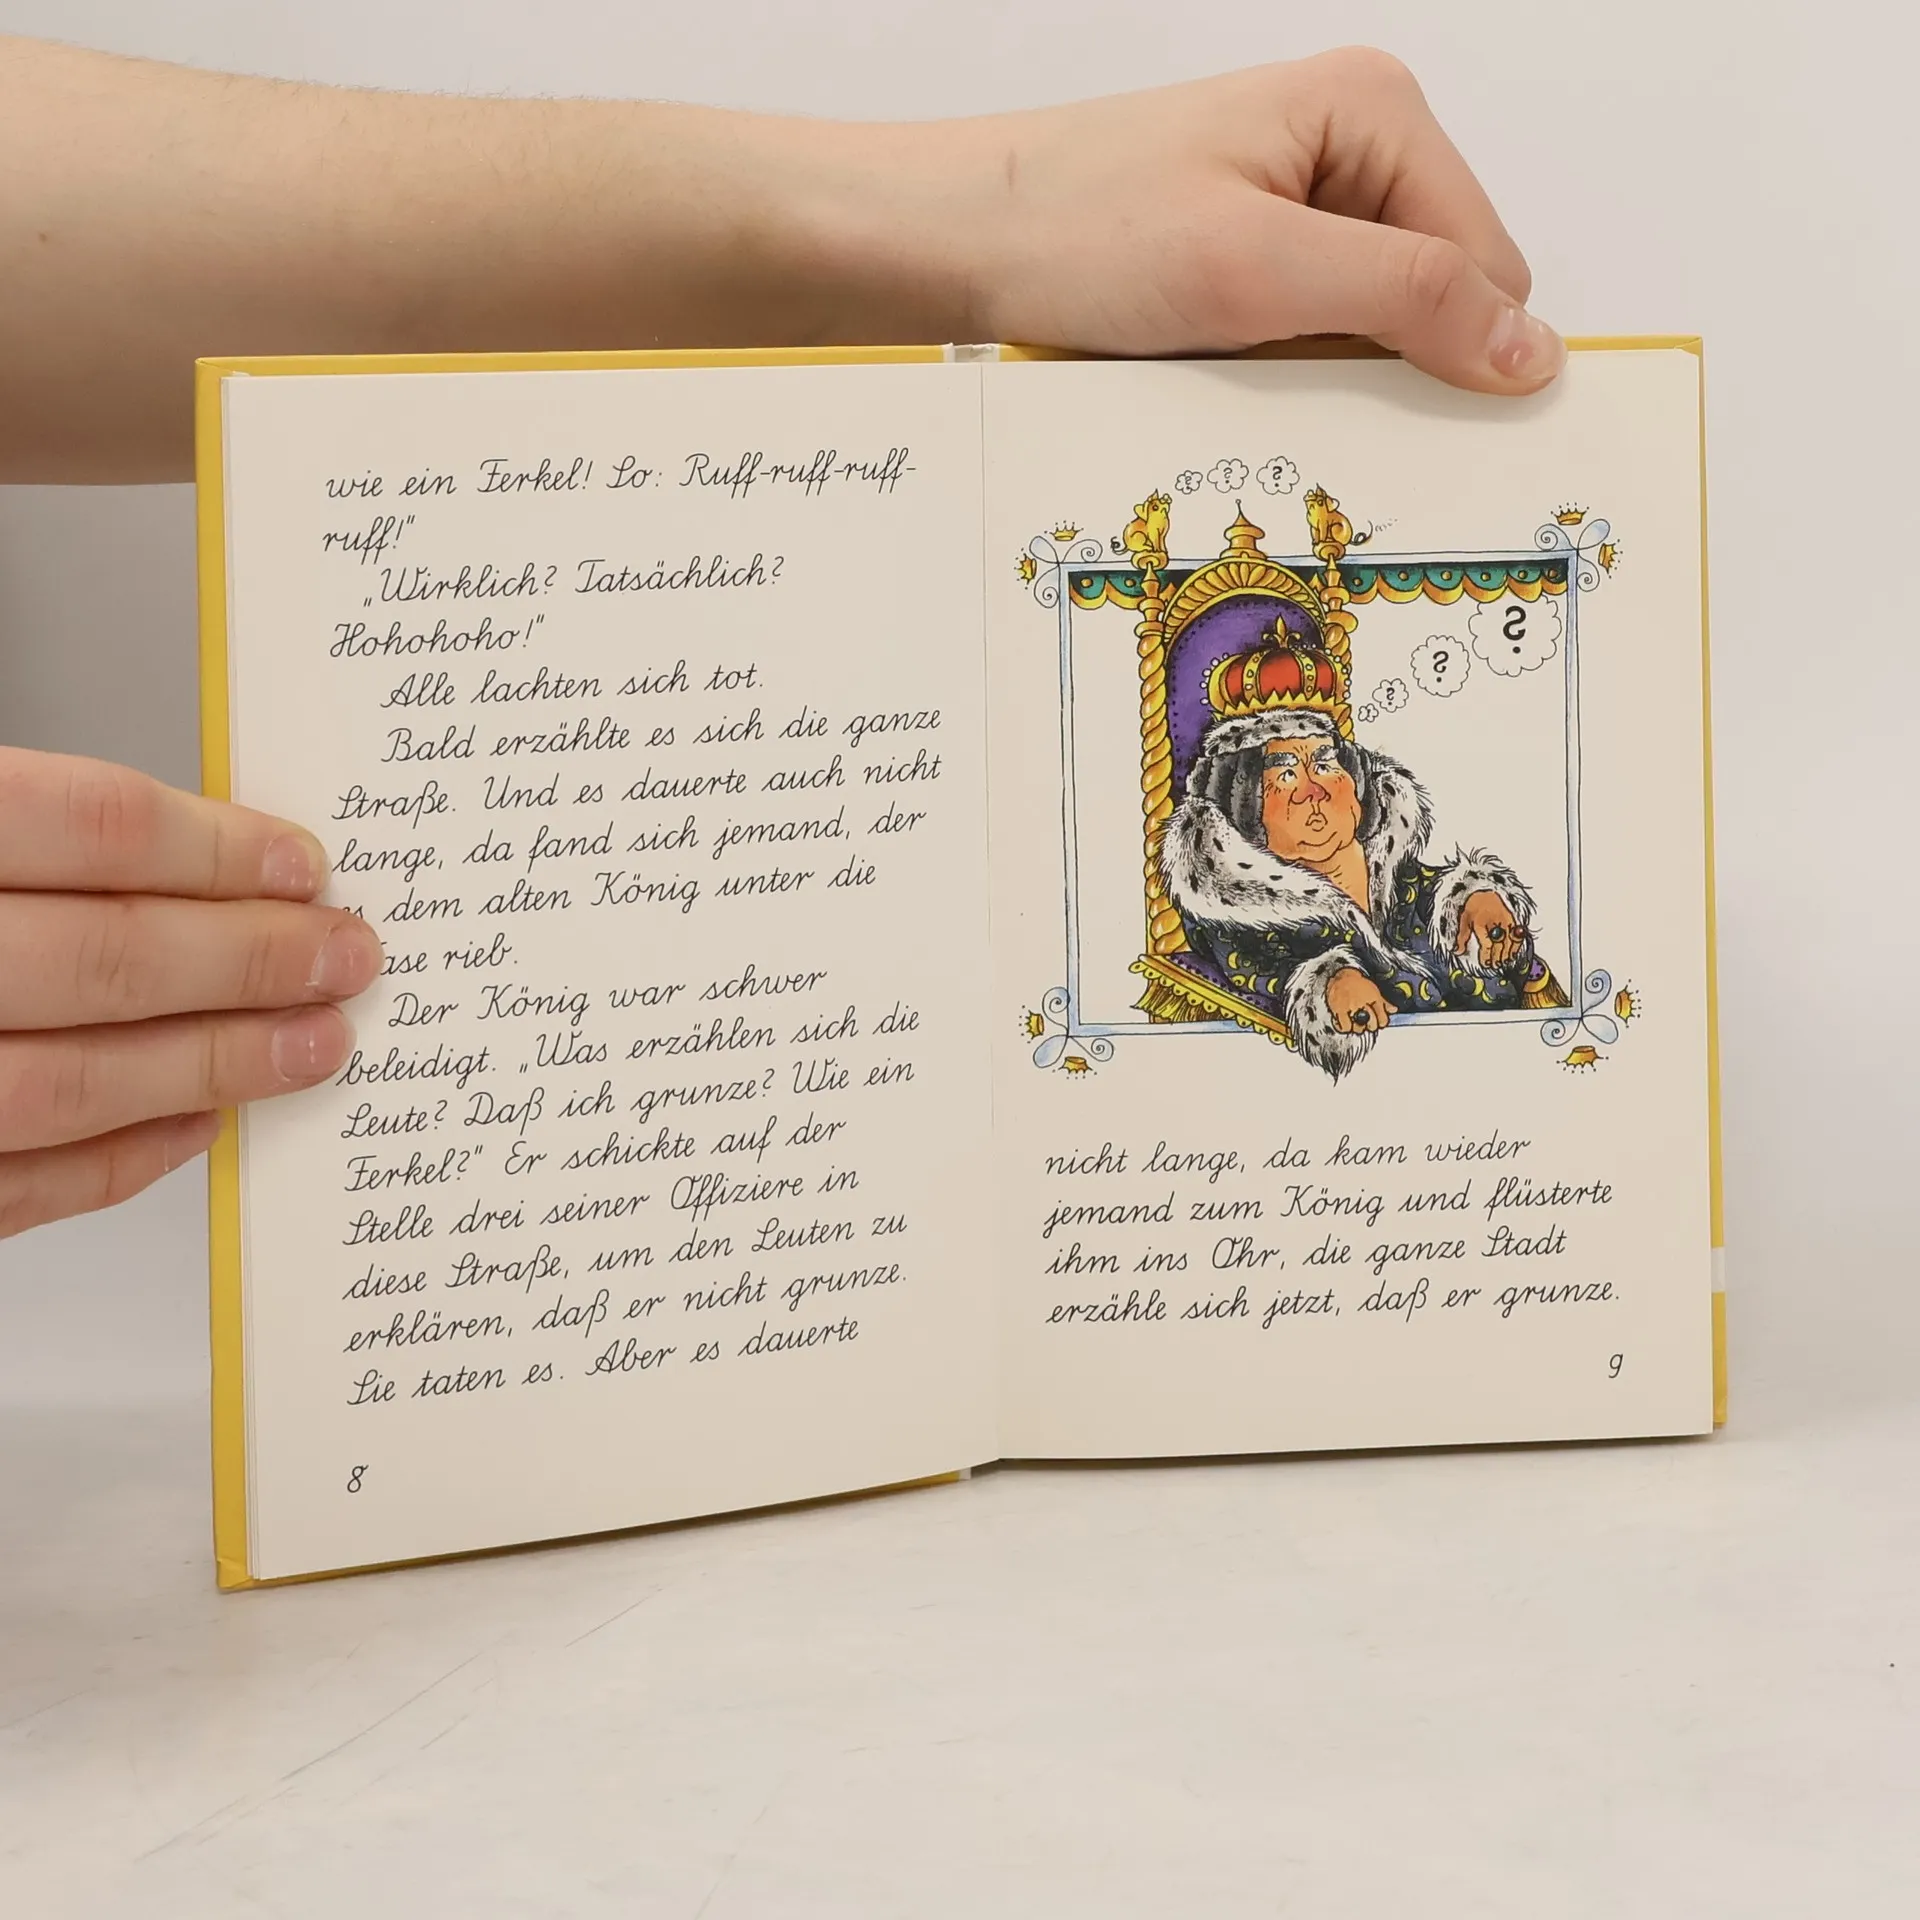 wie ein Ferkel! So: Ruff-ruff-ruff-
ruff!"
„Wirklich? Tatsächlich?
Hohohoho!"
Alle lachten sich tot.
Bald erzählte es sich die ganze
Straße. Und es dauerte auch nicht
lange, da fand sich jemand, der
dem alten König unter die
rieb.
Der König war schwer
beleidigt. „Was erzählen sich die
Leute? Daß ich grunze? Wie ein
Ferkel?" Er schickte auf der
Stelle drei seiner Offiziere in
diese Straße, um den Leuten zu
erklären, daß er nicht grunze.
Sie taten es. Aber es dauerte
8
? ? ?
? ? ? ?
nicht lange, da kam wieder
jemand zum König und flüsterte
ihm ins Ohr, die ganze Stadt
erzähle sich jetzt, daß er grunze.
9